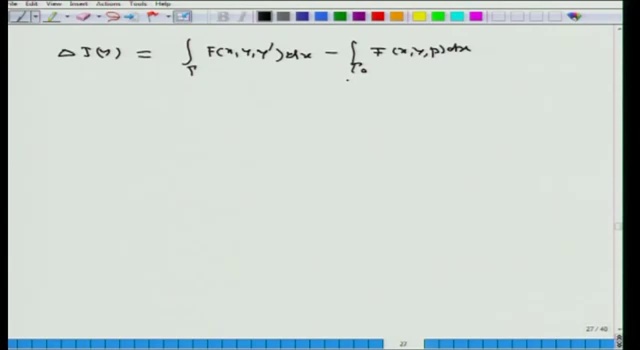 Edit View Insert Actions Tools Help
Δ J(Y) = ∫_Γ F(x, Y, Y') dx − ∫_Γ₀ F(x, Y, p) dx
27 / 48
27